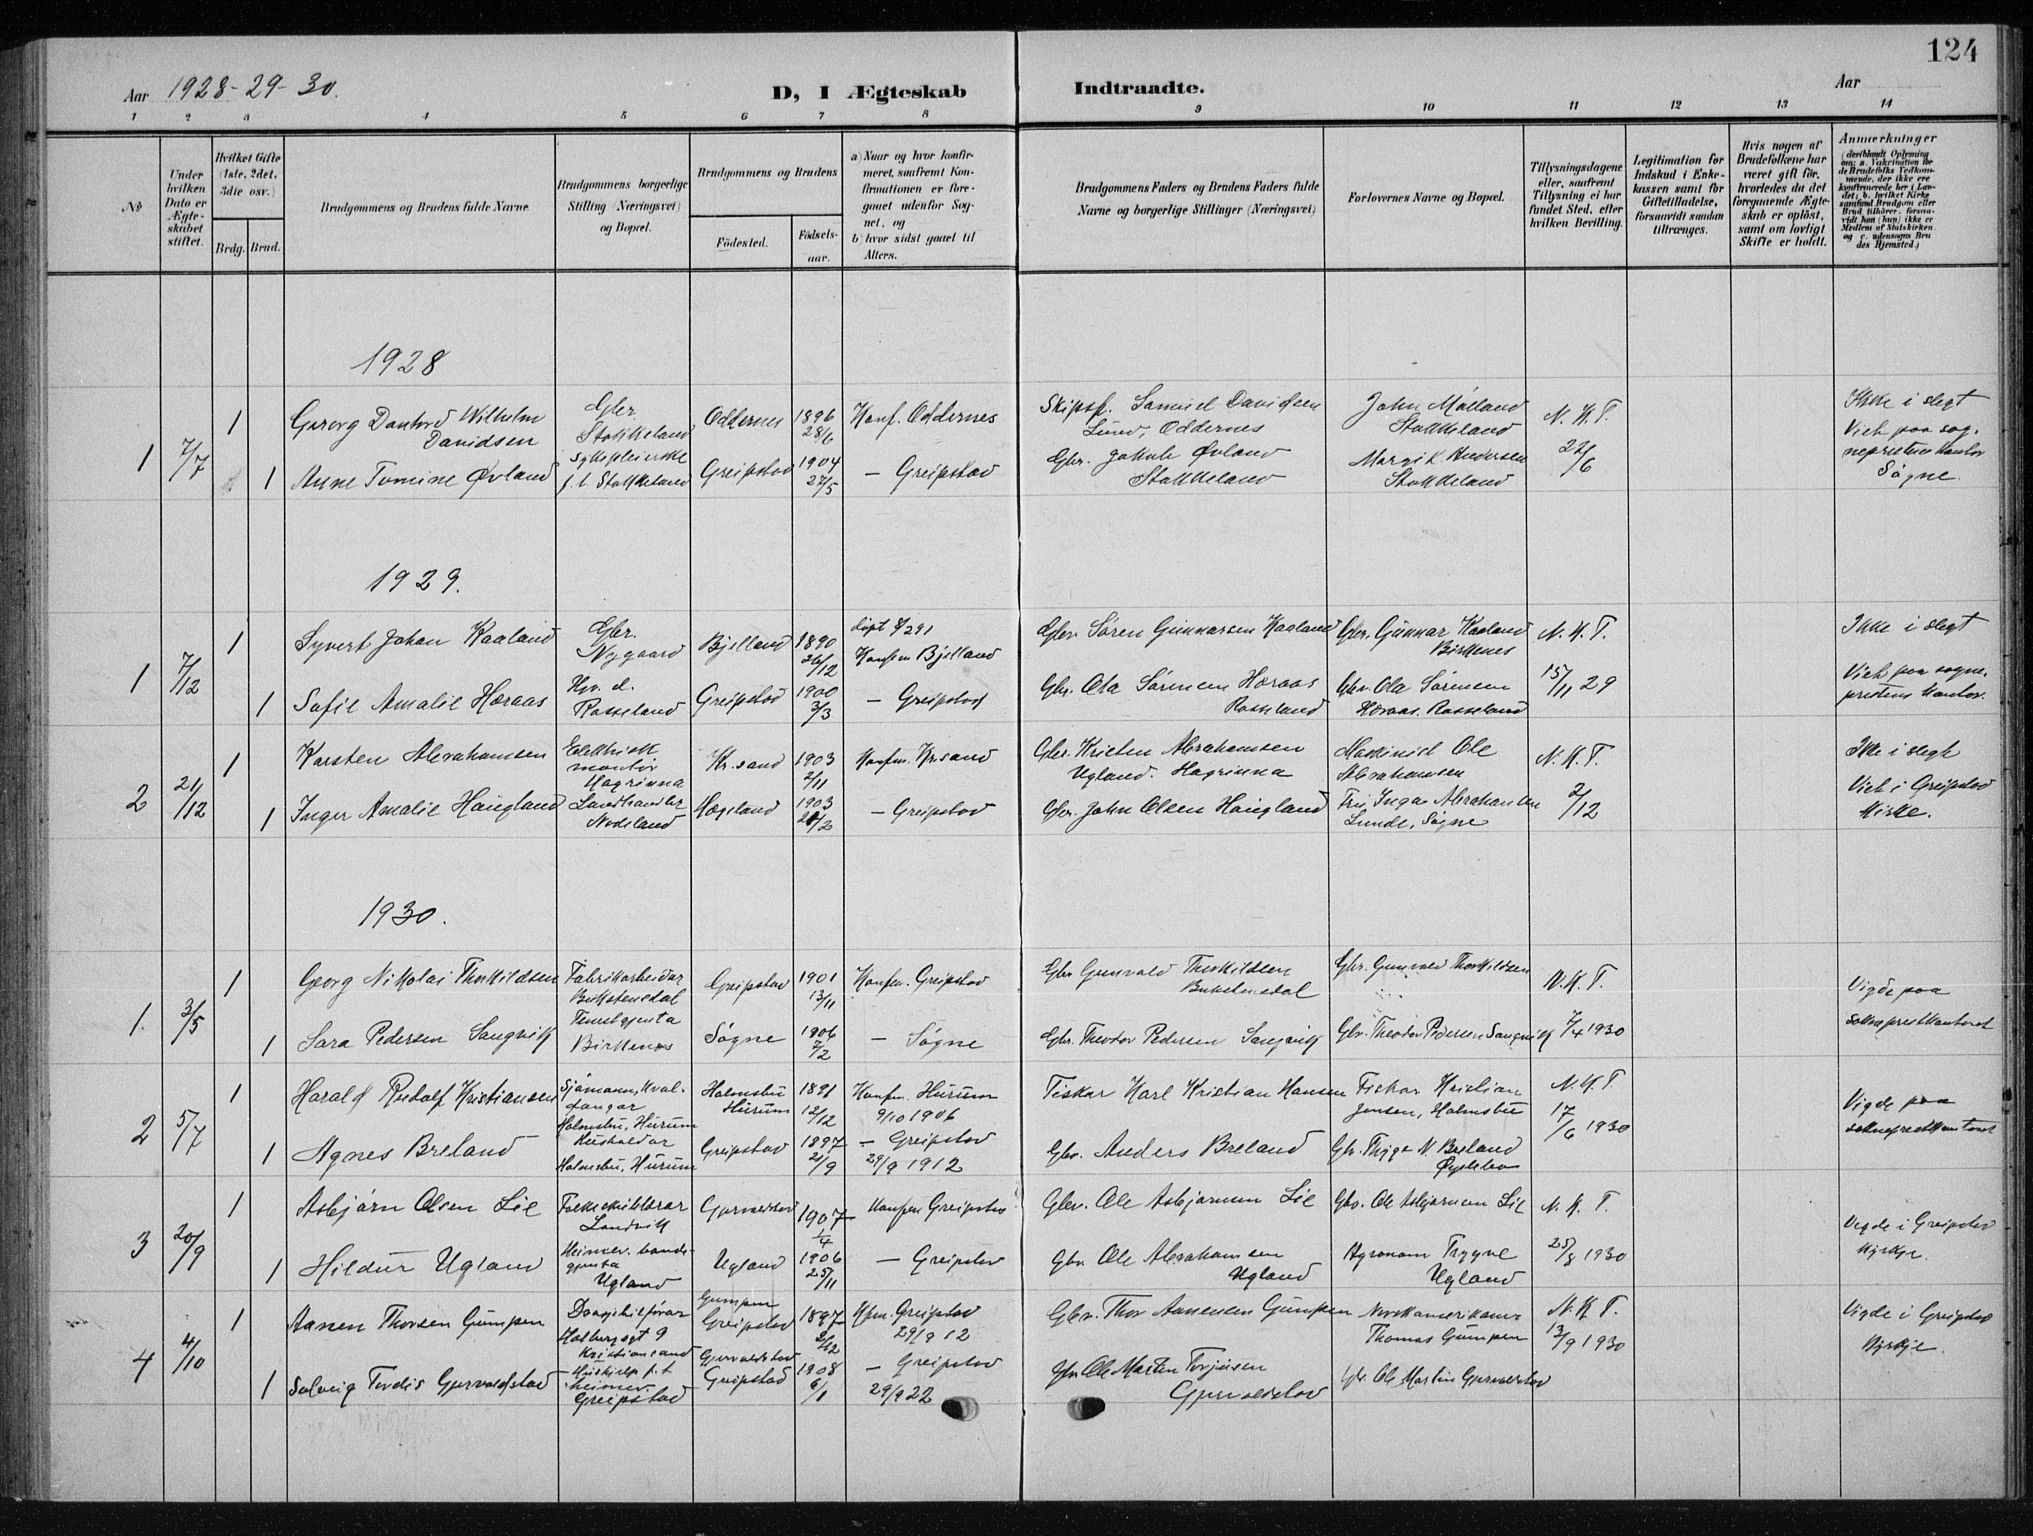 124
Aar 1928-29-30.
D, I Ægteskab Indtraadte.
Aar
1 2 3 4 5 6 7 8 9 10 11 12 13 14
No
Under hvilken Dato er Ægteskabet stiftet.
Hvilket Gifte (1ste, 2det, 3die osv.)
Brdg. Brud.
Brudgommens og Brudens fulde Navne.
Brudgommens borgerlige Stilling (Næringsvei) og Bopæl.
Brudgommens og Brudens
Födested.
Födsels-aar.
a) Naar og hvor konfirmeret, saafremt Konfirmationen er foregaaet udenfor Sognet, og
b) hvor sidst gaaet til Alters.
Brudgommens Faders og Brudens Faders fulde Navne og borgerlige Stillinger (Næringsvei)
Forlovernes Navne og Bopæl.
Tillysningsdagene eller, saafremt Tillysning ei har fundet Sted, efter hvilken Bevilling.
Legitimation for Indskud i Enkekassen samt for Giftetilladelse, forsaavidt saadan tiltrænges.
Hvis nogen af Brudefolkene har været gift för, hvorledes da det foregaaende Ægteskab er oplöst, samt om lovligt Skifte er holdt.
Anmærkninger
(deriblandt Oplysning om: a. Vakcination för de Brudefolks Vedkommende, der ikke ere konfirmerede her i Landet; b. hvilket Kirkesamfund Brudgom eller Brud tilhører, forsaavidt han (hun) ikke er Medlem af Statskirken og c. udensogns Brudes Hjemsted.)
1928
1 7/7 1 Georg Davidsen Wilhelm Gbr. Stokkeland Oddernes 1896 28/6 Konf. Oddernes Skipsf. Samuel Davidsen Lund, Oddernes John Møland Stokkeland N. K. T. Ikke i slegt
1 Anne Tomine Øvland Sykepleierske f. t. Stokkeland Greipstad 1904 27/5 — Greipstad Gbr. Jakob Øvland Stokkeland Margit Andersen Stokkeland 22/6 Viet paa sogneprestens kontor Søgne.
1929.
1 7/12 1 Syvert Johan Kaaland Gbr. Nygaard Bjelland 1890 26/12 døpt 4/2 91 Konfm Bjelland Gbr. Søren Gunnarsen Kaaland Gbr. Gunnar Kaaland Birkenes N. K. T. Ikke i slegt
1 Sofie Amalie Høraas Hjv. d. Rosseland Greipstad 1900 3/3 — Greipstad Gbr. Ola Sørensen Høraas Rosseland Gbr. Ola Sørensen Høraas. Rosseland 15/11 29 Viet paa sogneprestens kontor.
2 21/12 1 Karsten Abrahamsen Elektrisk montør Hagrinna Kr.sand 1903 2/11 Konfm. Kr.sand Gbr. Kristen Abrahamsen Ugland. Hagrinna Maskinist Ole Abrahamsen N. K. T. Ikke i slegt
1 Inger Amalie Haugland Landhandler Nodeland Hægeland 1903 21/2 — Greipstad Gbr. John Olsen Haugland Fru Inga Abrahamsen Lunde, Søgne 2/12 Viet i Greipstad kirke.
1930.
1. 3/5 1 Georg Nikolai Thorkildsen Fabrikarbeidar Bukstensdal Greipstad 1901 13/11 Konfm. Greipstad Gbr Gunvald Thorkildsen Bukstensdal Gbr. Gunvald Thorkildsen N. K. T. Vigde paa
1 Sara Pedersen Sangvik Tenestgjenta Birkenes Søgne 1906 7/2 — Søgne Gbr. Theodor Pedersen Sangvik Gbr. Theodor Pedersen Sangvik 7/4 1930 sokneprestkontoret
2 5/7 1 Harald Rudolf Kristiansen Sjømann, kvalfangar Holmsbu, Hurum Holmsbu Hurum 1891 12/12 Konfm. Hurum 9/10 1906 Fiskar Karl Kristian Hansen Fiskar Kristian Jensen, Holmsbu N. K. T. 17/6 1930 Vigde paa sokneprestkontoret
1 Agnes Breland Hushaldar Holmsbu, Hurum Greipstad 1897 21/9 — Greipstad 29/9 1912 Gbr. Anders Breland Gbr. Trygve N. Breland Øyslebø
3 20/9 1 Asbjørn Olsen Lie Folkeskulelærar Landvik Gjervoldstad 1907 1/4 Konfm Greipstad Gbr. Ole Asbjørnsen Lie Gbr. Ole Asbjørnsen Lie N. K. T. Vigde i Greipstad kyrkje.
1 Hildur Ugland Heimev. bondegjenta Ugland Ugland 1906 25/11 — Greipstad Gbr. Ole Abrahamsen Ugland Agronom Trygve Ugland 25/8 1930
4 4/10 1 Aanen Thorsen Gumpen Drosjebilførar Holbergsgt 9 Kristiansand Gumpen Greipstad 1897 2/12 Kfm. Greipstad 29/9 12 Gbr. Thor Aanensen Gumpen Norskamerikanar Thomas Gumpen N. K. T. 13/9 1930 Vigde i Greipstad kyrkje.
1 Solveig Tordis Gjervoldstad Hushjelp f. t. heimev. Greipstad Gjervoldstad Greipstad 1908 6/1 — Greipstad 29/9 22 Gbr. Ole Martin Torjusen Gjervoldstad Gbr. Ole Martin Gjervoldstad